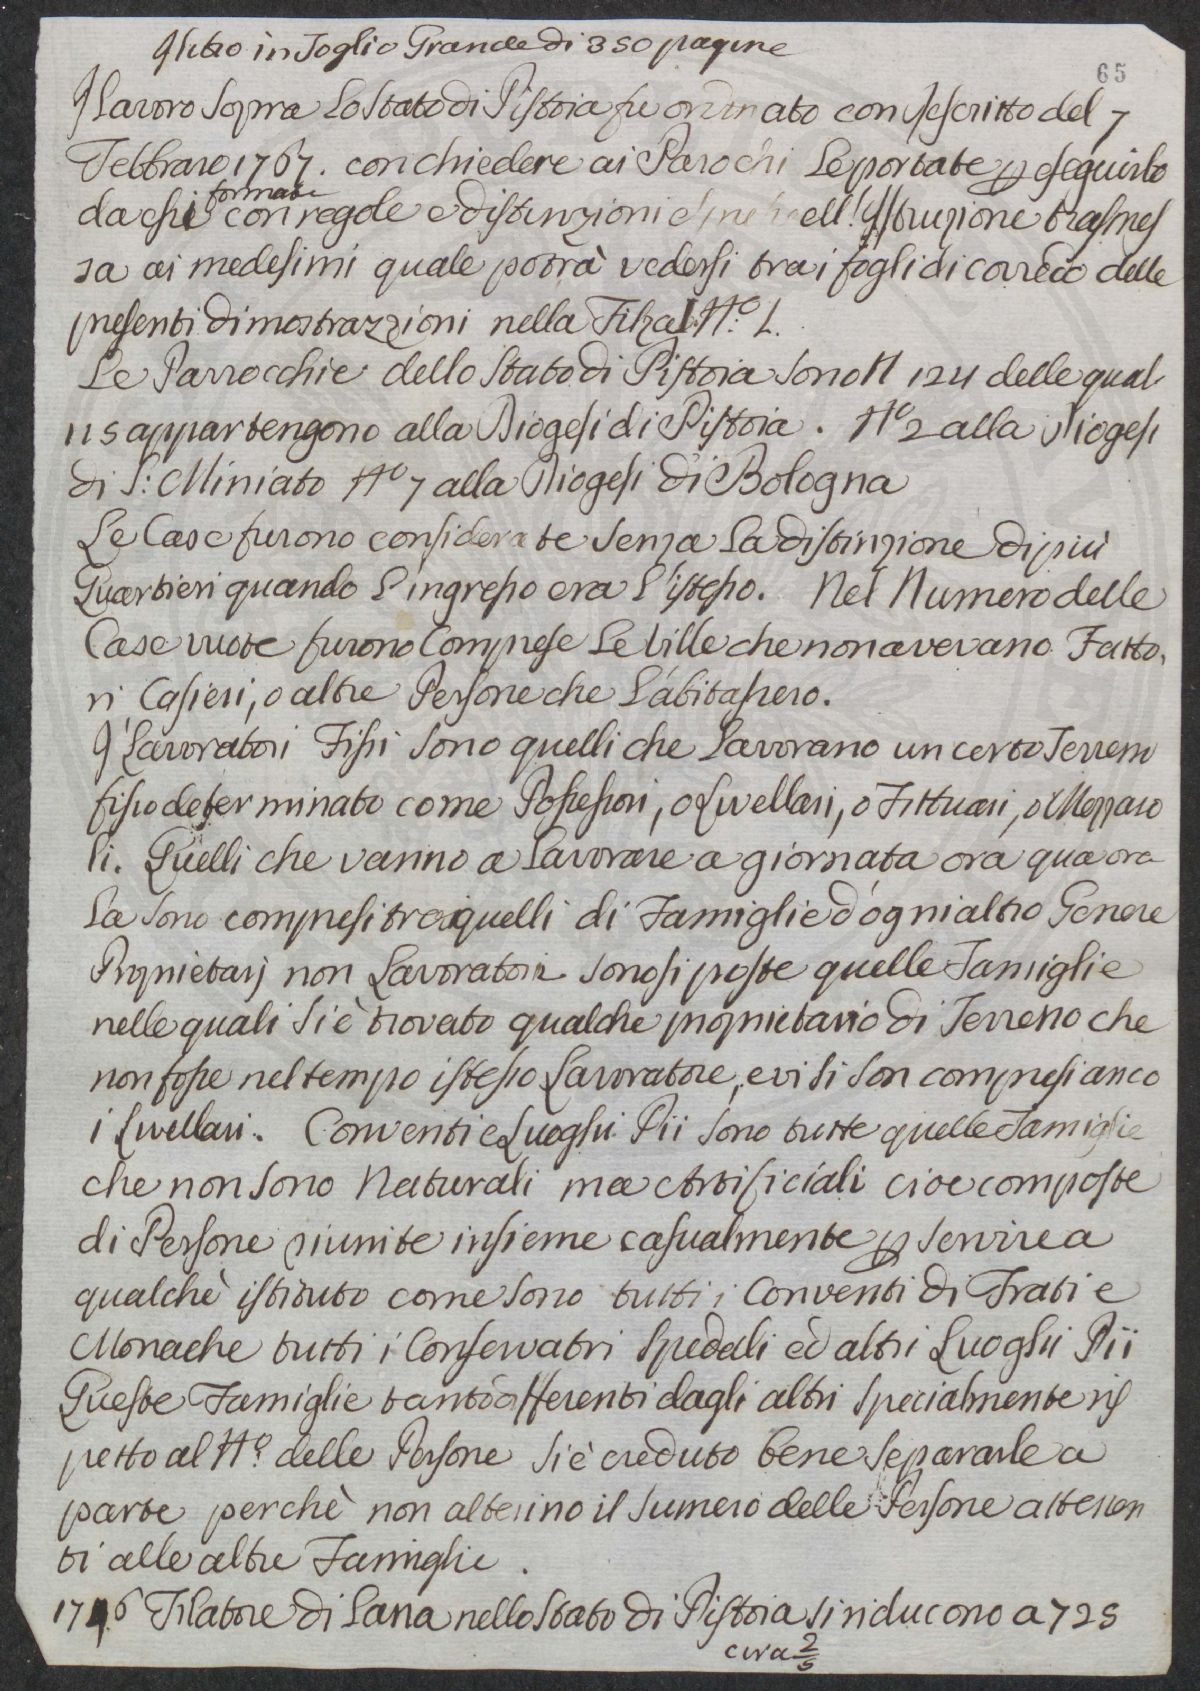 Libro in Foglio Grande di 350 pagine
65
Il Lavoro Sopra Lo Stato di Pistoia fu ordinato con Rescritto del 7
Febbraro 1767. con chiedere ai Parochi Le portate p eseguirlo
formate
da essi con regole e distinzioni nell'Istruzione trasmes
sa ai medesimi quale potrà vedersi tra i fogli di corredo delle
presenti dimostrazzioni nella Filza N.º 1.
Le Parrocchie dello Stato di Pistoia sono N 124 delle quali
115 appartengono alla Diogesi di Pistoia. Nº 2 alla Diogesi
di S: Miniato Nº 7 alla Diogesi di Bologna
Le Case furono considerate senza La distinzione di più
Quartieri quando L'ingresso era L'istesso. Nel Numero delle
Case vuote furono Comprese Le Ville che non avevano Fatto,
ri Casieri, o altre Persone che L'abitassero.
I Lavoratori Fissi sono quelli che Lavorano un certo Terreno
fisso determinato come Possessori, o Livellari, o Fittuari, o Mezzaro
li. Quelli che vanno a Lavorare a giornata ora qua ora
La sono compresi tra quelli di Famiglie d'ogni altro Genere
Proprietarj non Lavoratori sonosi poste quelle Famiglie
nelle quali si è trovato qualche proprietario di Terreno che
non fosse nel tempo istesso Lavoratore, e vi si son compresi anco
i Livellari. Conventi e Luoghi Pii sono tutte quelle Famiglie
che non sono Naturali ma Artificiali cioe composte
di Persone riunite insieme casualmente p servire a
qualchè istituto come sono tutti i Conventi di Frati e
Monache tutti i Conservatri Spedali ed altri Luoghi Pii
Queste Famiglie tanto differenti dagli altri specialmente ris
petto al N.º delle Persone si è creduto bene separarle a
parte perchè non alterino il Numero delle Persone attenen
ti alle altre Famiglie.
1746 Filatore di Lana nello Stato di Pistoia si riducono a 725
circa 2/5